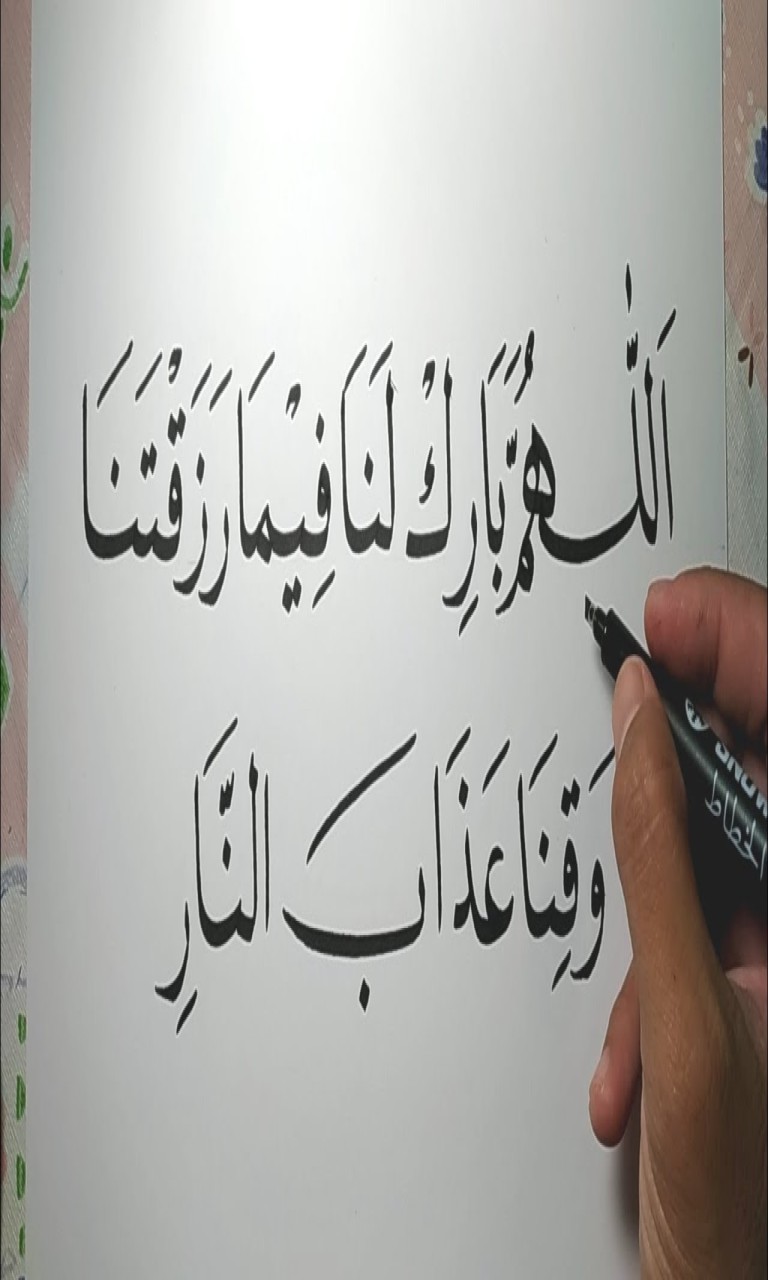 اَللّٰهُمَّ بَارِكْ لَنَا فِيْمَا رَزَقْتَنَا
وَقِنَا عَذَابَ النَّارِ
الخطاط